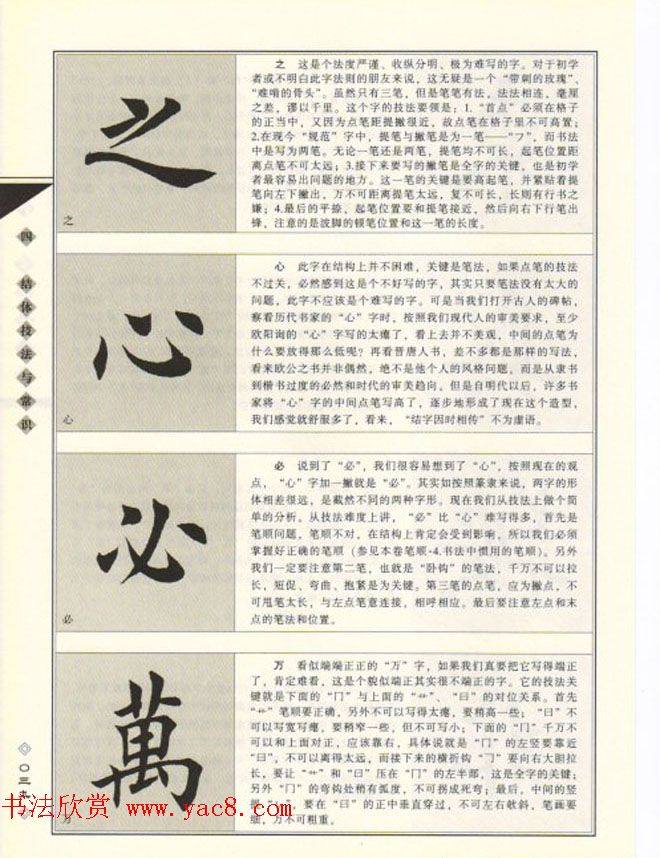 四 结体技法与常识
之
之 这是个法度严谨、收纵分明、极为难写的字。对于初学
者或不明白此字法则的朋友来说，这无疑是一个“带刺的玫瑰”、
“难啃的骨头”。虽然只有三笔，但是笔笔有法，法法相连，毫厘
之差，谬以千里。这个字的技法要领是：1.“首点”必须在格子
的正当中，又因为点笔距提撇很近，故点笔在格子里不可高置；
2.在现今“规范”字中，提笔与撇笔是为一笔——“フ”，而书法
中是写为两笔。无论一笔还是两笔，提笔均不可长，起笔位置距
离点笔不可太远；3.接下来要写的撇笔是全字的关键，也是初学
者最容易出问题的地方。这一笔的关键是要高起笔，并紧贴着提
笔向左下撇出，万不可距离提笔太远，复不可长，长则有行书之
嫌；4.最后的平捺，起笔位置要和提笔接近，然后向右下行笔出
锋，注意的是波脚的顿笔位置和这一笔的长度。
之
心
心 此字在结构上并不困难，关键是笔法，如果点笔的技法
不过关，必然感到这是个不好写的字，其实只要笔法没有太大的
问题，此字不应该是个难写的字。可是当我们打开古人的碑帖，
察看历代书家的“心”字时，按照我们现代人的审美要求，至少
欧阳询的“心”字写的太瘪了，看上去并不美观，中间的点笔为
什么要放得那么低呢？再看晋唐人书，差不多都是那样的写法，
看来欧公之书并非偶然，绝不是他个人的风格问题，而是从隶书
到楷书过度的必然和时代的审美趋向。但是自明代以后，许多书
家将“心”字的中间点笔写高了，逐步地形成了现在这个造型，
我们感觉就舒服多了，看来，“结字因时相传”不为虚语。
心
必
必 说到了“必”，我们很容易想到了“心”，按照现在的观
点，“心”字加一撇就是“必”。其实如按照篆隶来说，两字的形
体相差很远，是截然不同的两种字形。现在我们从技法上做个简
单的分析。从技法难度上讲，“必”比“心”难写得多，首先是
笔顺问题，笔顺不对，在结构上肯定会受到影响，所以我们必须
掌握好正确的笔顺（参见本卷笔顺·4.书法中惯用的笔顺）。另外
我们一定要注意第二笔，也就是“卧钩”的笔法，千万不可以拉
长，短促、弯曲、抱紧是为关键。第三笔的点笔，应为撇点，不
可甩笔太长，与左点笔意连接，相呼相应。最后要注意左点和末
点的笔法和位置。
必
萬
万 看似端端正正的“万”字，如果我们真要把它写得端正
了，肯定难看，这是个貌似端正其实很不端正的字。它的技法关
键就是下面的“冂”与上面的“艹”、“曰”的对位关系。首先
“艹”笔顺要正确，另外不可以写得太瘪，要稍高一些；“曰”不
可以写宽写瘪，要稍窄一些，但不可写小；下面的“冂”千万不
可以和上面对正，应该靠右，具体说就是“冂”的左竖要靠近
“曰”，不可以离得太远，而接下来的横折钩“𠃌”要向右大胆拉
长，要让“艹”和“曰”压在“冂”的左半部，这是全字的关键；
另外“冂”的弯钩处稍有弧度，不可拐成死弯；最后，中间的竖
要在“曰”的正中垂直穿过，不可左右欹斜，笔画要
细，万不可粗重。
万
书法欣赏 www.yac8.com